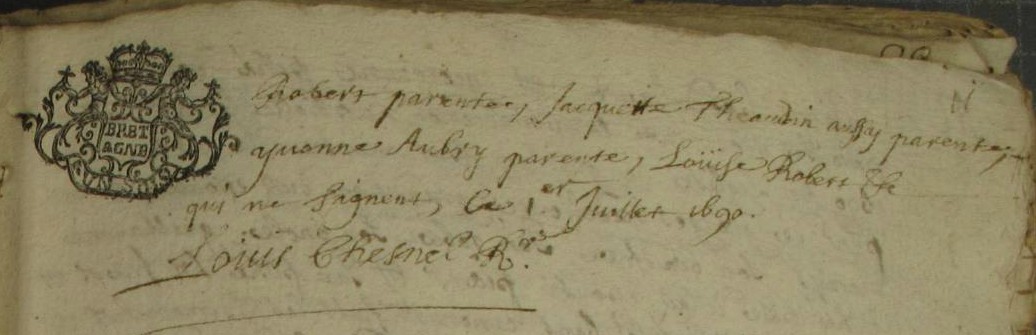 BRET
AGNE
UN SOL
Robert parente, Jacquette Theaudin aussy parente,
yvonne Aubry parente, Loüise Robert &c
qui ne signent, Ce 1er Juillet 1690.
Louis Chesnel Rr.